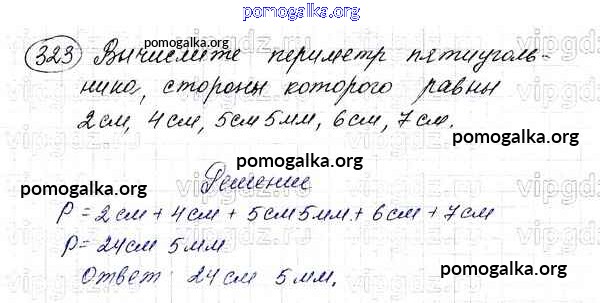 pomogalka.org
323 Вычислите периметр пятиуголь-
pomogalka.org
ника, стороны которого равны
2см, 4см, 5см 5мм, 6см, 7см.
pomogalka.org
pomogalka.org
Решение
pomogalka.org
pomogalka.org
P = 2см + 4см + 5см 5мм + 6см + 7см
P = 24см 5мм
pomogalka.org
Ответ 24см 5мм.
pomogalka.org